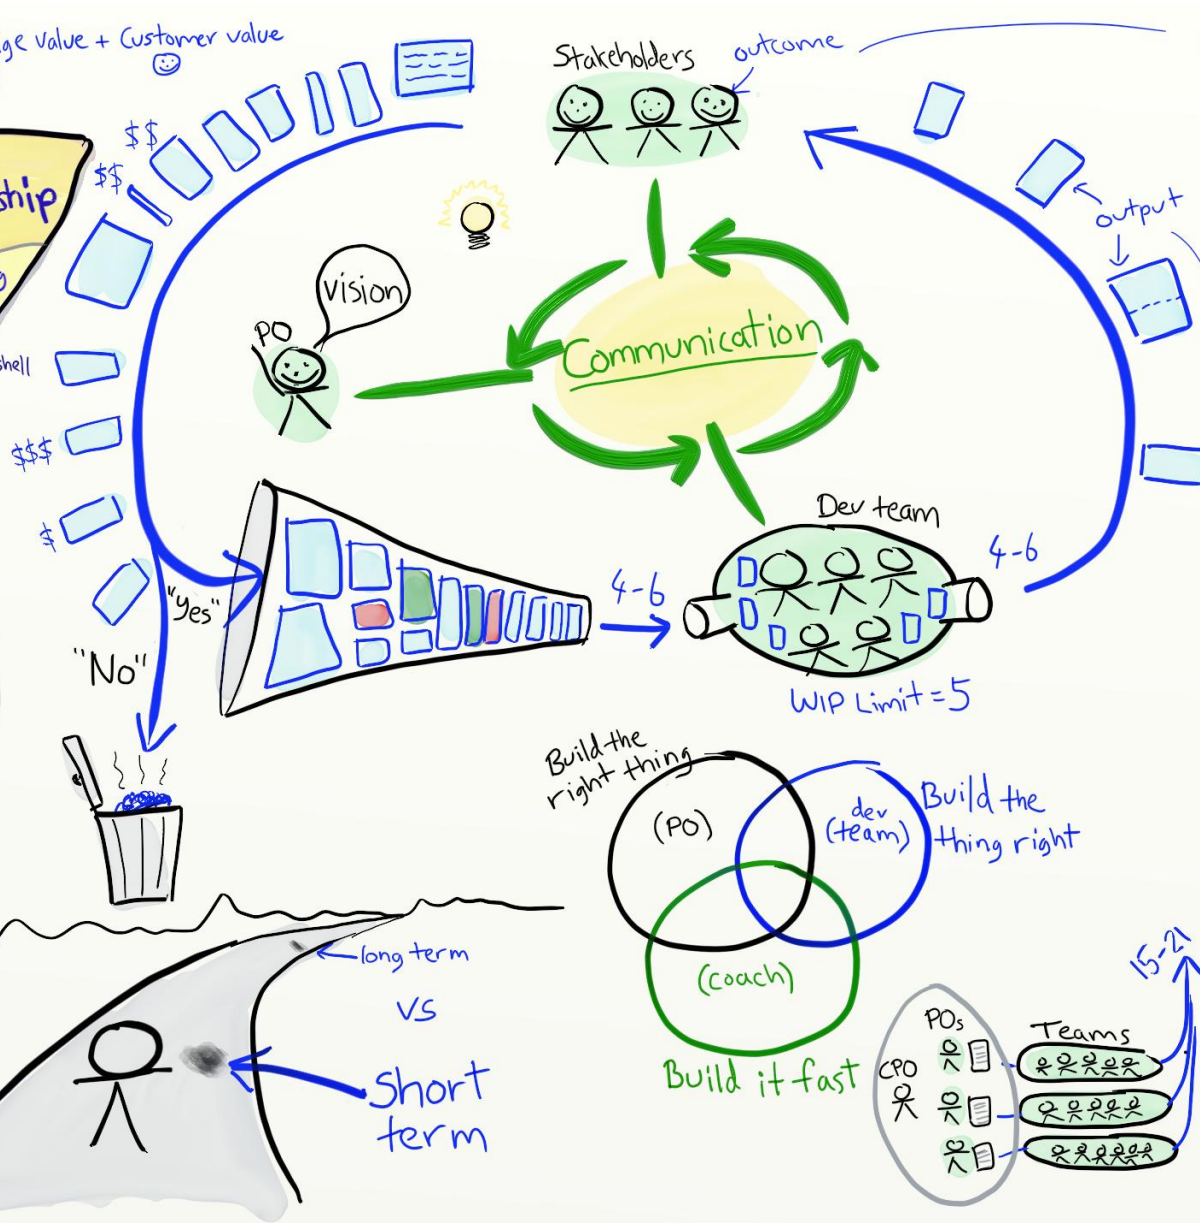 ge value + Customer value
Stakeholders
outcome
$$
$$
ship
output
vision
PO
Communication
shell
$$$
$
"Yes"
"No"
4-6
Dev team
4-6
WIP Limit = 5
Build the
right thing
(PO)
dev
(team)
Build the
thing right
(coach)
Build it fast
long term
vs
Short
term
15-21
POs
CPO
Teams